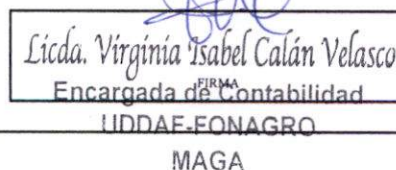 Licda. Virginia Isabel Calán Velasco
FIRMA
Encargada de Contabilidad
UDDAF-FONAGRO
MAGA